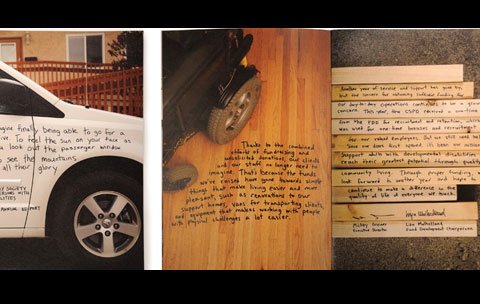 agine finally being able to go for a
ive. To feel the sun on your face as
u look out the passenger window
to see the mountains
all their glory.
SOCIETY
PERSONS WITH
ANNUAL REPORT
Thanks to the combined
attacks of fundraising and
unsolicited donations, our clients
and our staff no longer need to
imagine. That's because the funds
we've raised have gone towards simple
things that make living easier and more
pleasant, such as renovations to our
support homes, vans for transporting clients,
and equipment that makes working with people
with physical challenges a lot easier.
Another year of service and support has gone by,
but the concern for obtaining sufficient funding for
our day-to-day operations continues to be a
concern. This year, the CSPD received a one-time
from the PDD for recruitment and retention, which
was used for one-time bonuses and recruitment
for our valued employees. But we still need help
support adults with developmental disabilities
reach their greatest potential through
community living. Through proper funding, we
look forward to another year and hope to
continue to make a difference in the
quality of life of everyone we touch.
Mickey Greiner
Executive Director
Lou Mulholland
Fund Development Chairperson